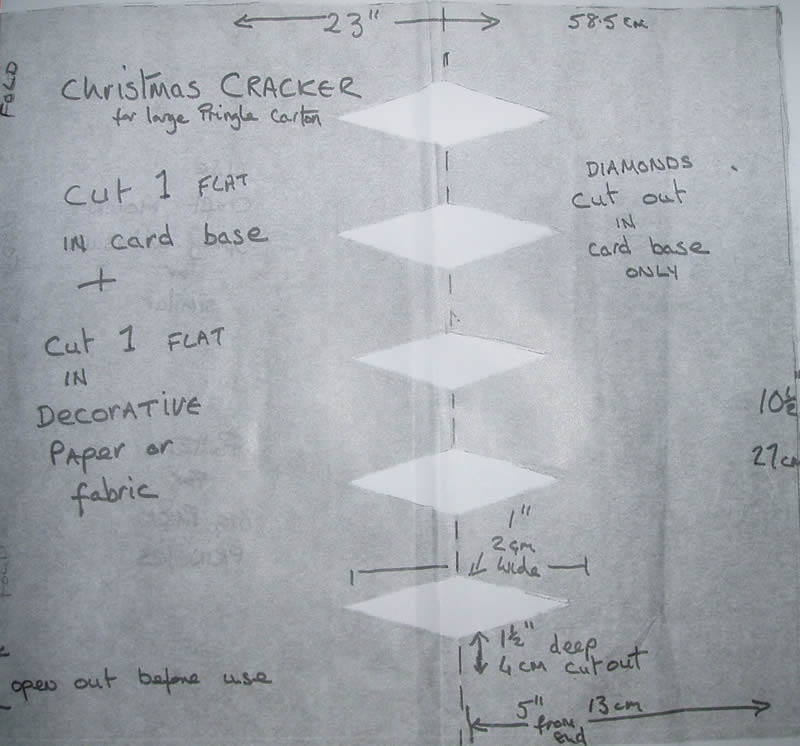 23" 58.5 cm
FOLD
Christmas CRACKER
for large Pringle Carton
Cut 1 FLAT
IN card base
+
Cut 1 FLAT
IN
DecorATIVE
PAper or
fabric
DIAMONDS
Cut out
IN
card base
ONLY
10½
27cm
1"
2 cm
wide
1½" deep
4 cm cut out
FOLD
open out before use
5" 13 cm
from
end